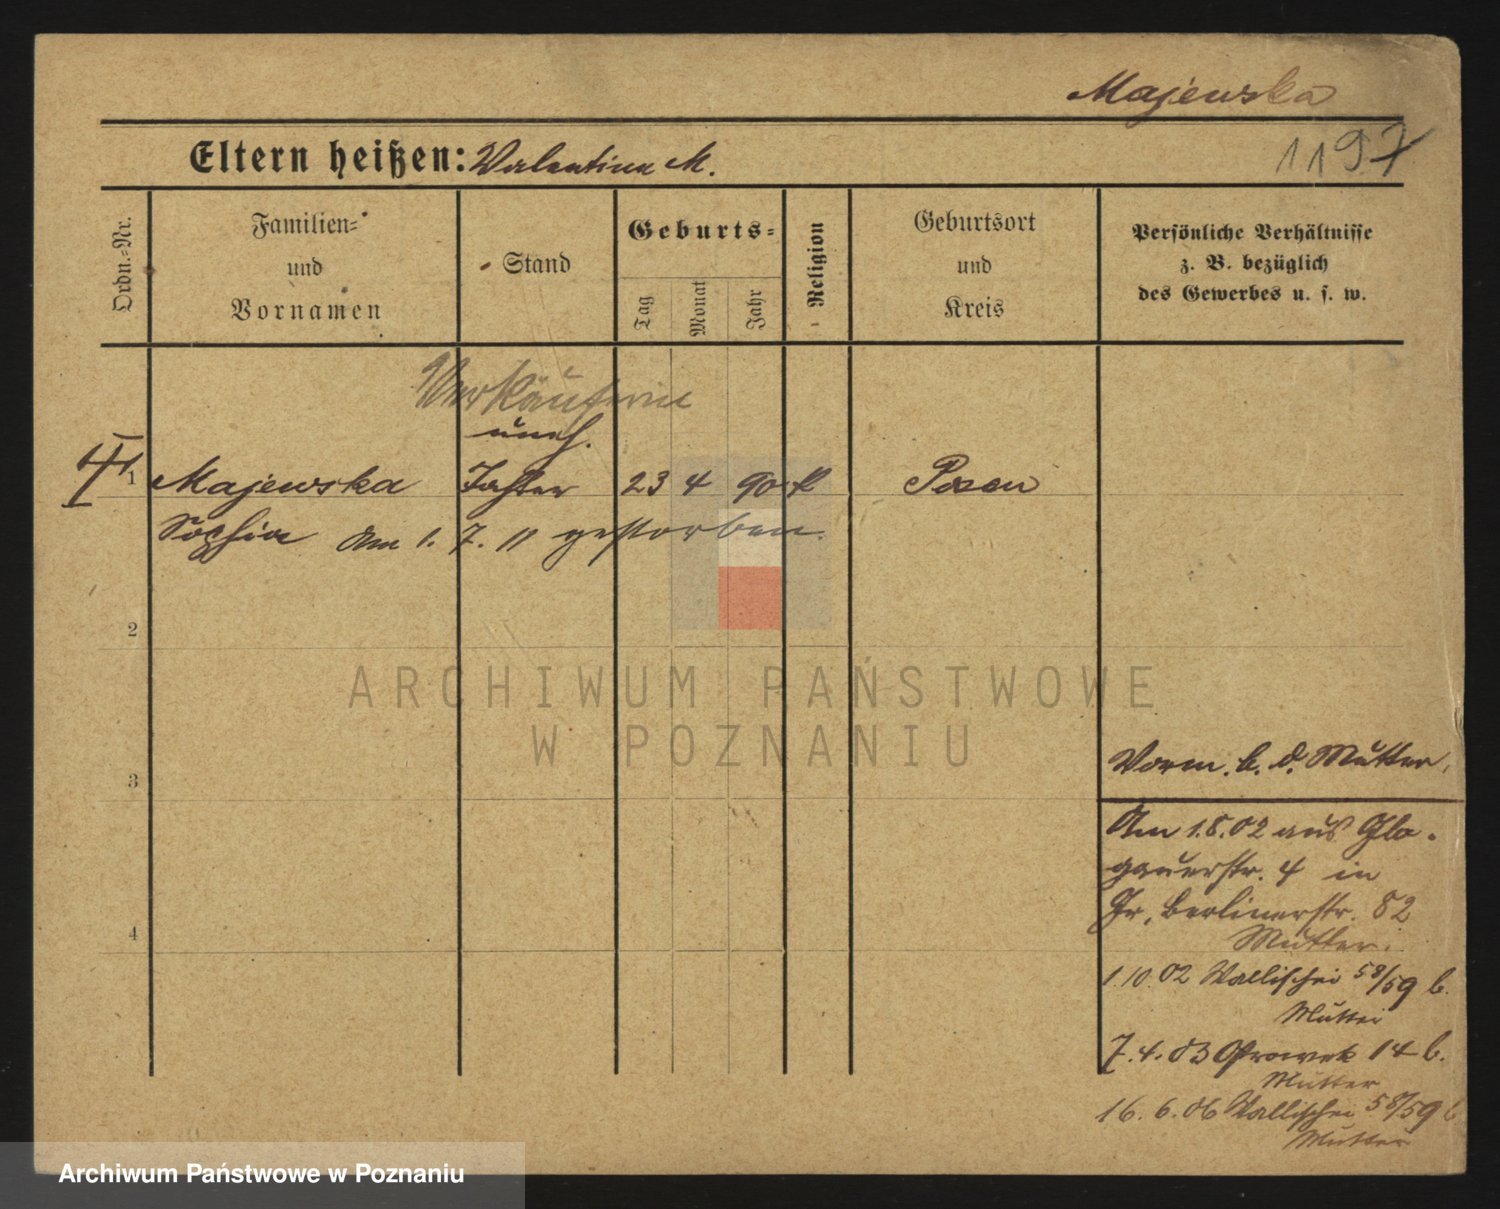 Majewska
1197
Eltern heißen: Valentina M.
Ordn.-Nr.
Familien-
und
Vornamen
Stand
Geburts-
Tag
Monat
Jahr
Religion
Geburtsort
und
Kreis
Persönliche Verhältnisse
z. B. bezüglich
des Gewerbes u. s. w.
Verkäuferin
uneh.
1 Majewska Tochter 23 4 90 k Posen
Sophia Am 1. 7. 11 gestorben.
2
ARCHIWUM PAŃSTWOWE
W POZNANIU
3
Vorm. b. d. Mutter.
Am 1.8.02 aus Glo-
gauerstr. 4 in
Gr. Berlinerstr. 82
4
Mutter.
1.10.02 Wallischei 58/59 b.
Mutter
7.4.03 Ostrowek 14 b.
Mutter
16.6.06 Wallischei 58/59 b
Mutter
Archiwum Państwowe w Poznaniu